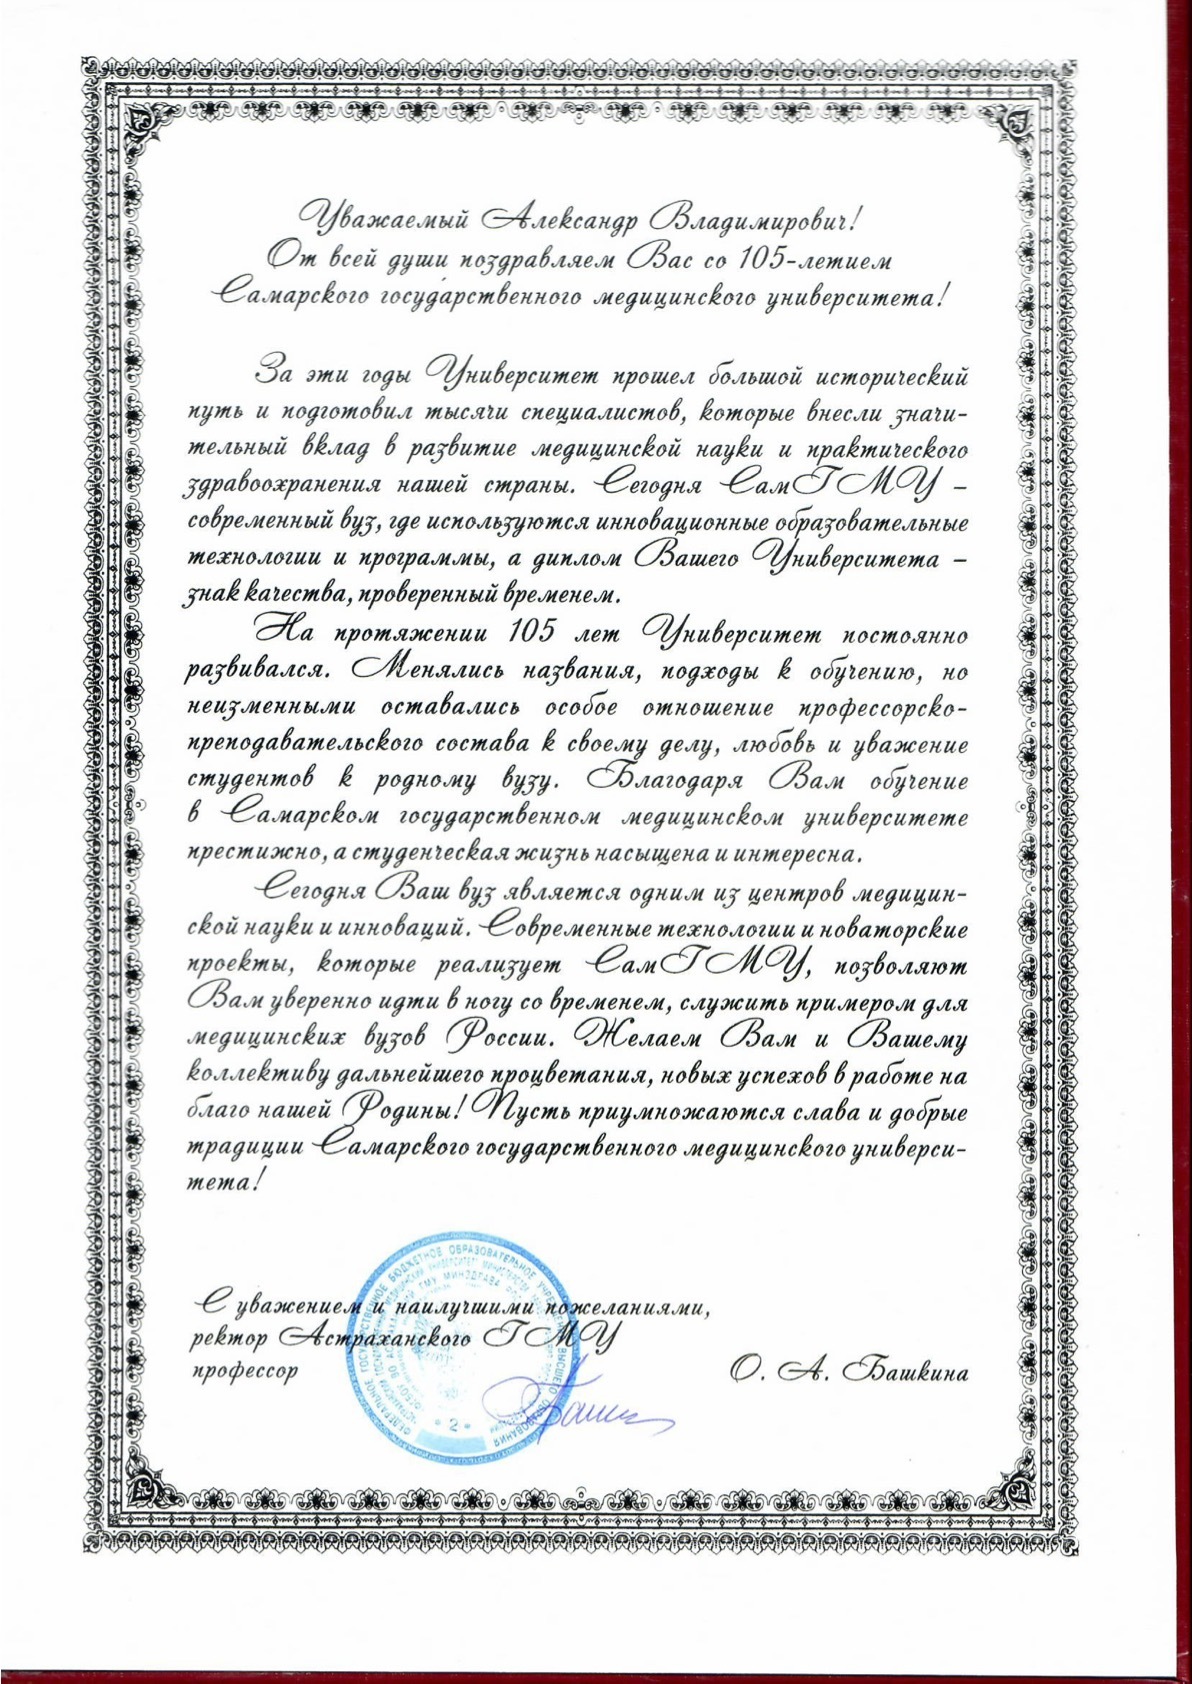 Уважаемый Александр Владимирович!
От всей души поздравляем Вас со 105-летием
Самарского государственного медицинского университета!
За эти годы Университет прошел большой исторический
путь и подготовил тысячи специалистов, которые внесли значи-
тельный вклад в развитие медицинской науки и практического
здравоохранения нашей страны. Сегодня СамГМУ –
современный вуз, где используются инновационные образовательные
технологии и программы, а диплом Вашего Университета –
знак качества, проверенный временем.
На протяжении 105 лет Университет постоянно
развивался. Менялись названия, подходы к обучению, но
неизменными оставались особое отношение профессорско-
преподавательского состава к своему делу, любовь и уважение
студентов к родному вузу. Благодаря Вам обучение
в Самарском государственном медицинском университете
престижно, а студенческая жизнь насыщена и интересна.
Сегодня Ваш вуз является одним из центров медицин-
ской науки и инноваций. Современные технологии и новаторские
проекты, которые реализует СамГМУ, позволяют
Вам уверенно идти в ногу со временем, служить примером для
медицинских вузов России. Желаем Вам и Вашему
коллективу дальнейшего процветания, новых успехов в работе на
благо нашей Родины! Пусть приумножаются слава и добрые
традиции Самарского государственного медицинского универси-
тета!
С уважением и наилучшими пожеланиями,
ректор Астраханского ГМУ
профессор О. А. Башкина
ФЕДЕРАЛЬНОЕ ГОСУДАРСТВЕННОЕ БЮДЖЕТНОЕ ОБРАЗОВАТЕЛЬНОЕ УЧРЕЖДЕНИЕ ВЫСШЕГО ОБРАЗОВАНИЯ
* 2 *